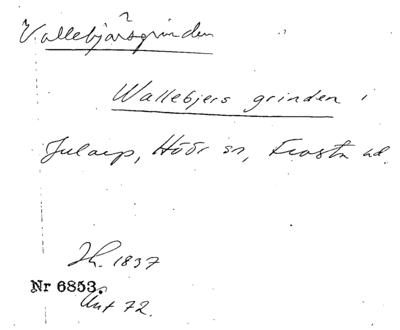 ? ?
Vallebjärsgrinden
Wallebjers grinden i
Jularp, Höör sn, Frosta hd.
Jh. 1837
Nr 6853.
Ant 72.